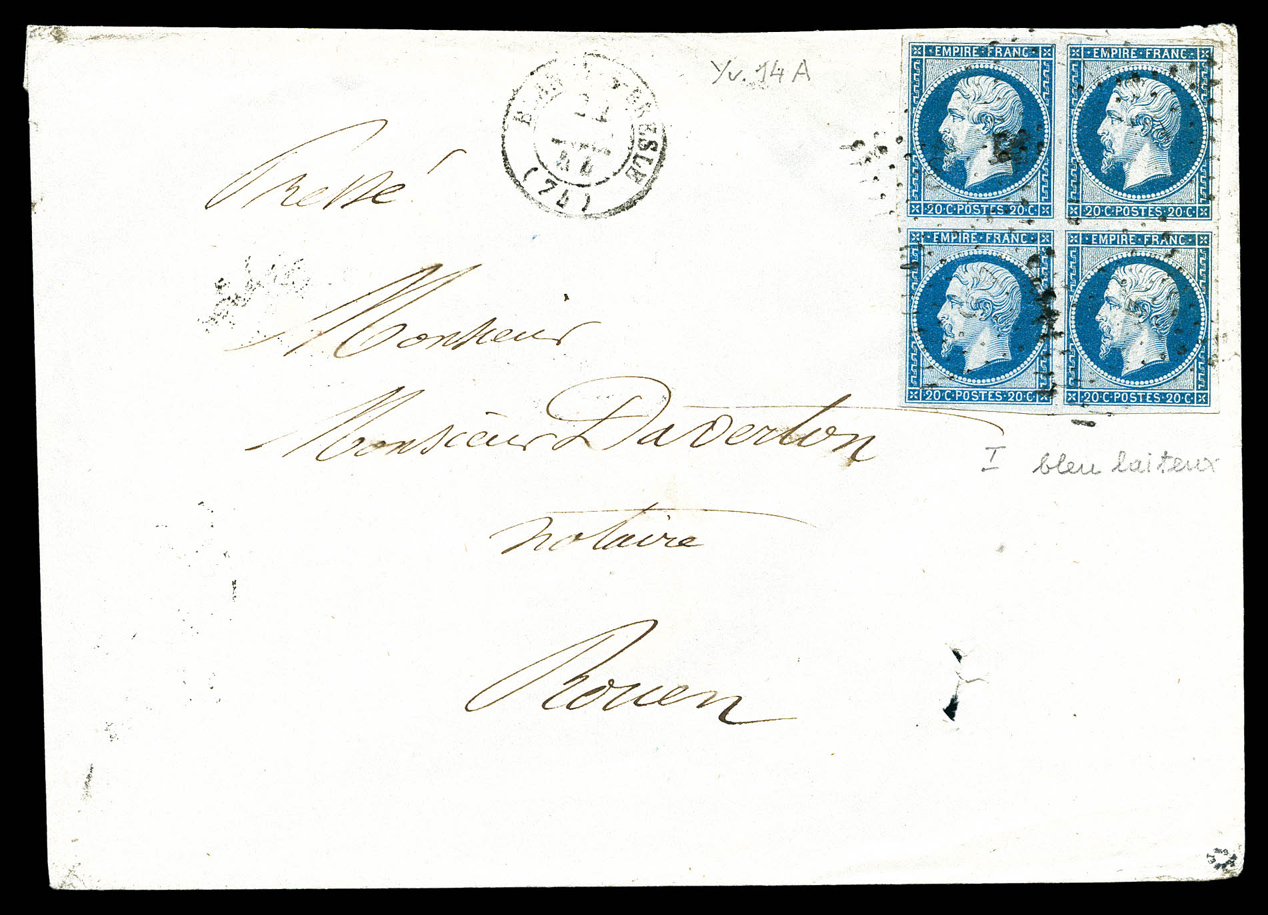 Yv. 14 A
BRESLE
(74)
EMPIRE · FRANC · EMPIRE · FRANC ·
20 · C · POSTES · 20 · C · 20 · C · POSTES · 20 · C ·
EMPIRE · FRANC · EMPIRE · FRANC ·
20 · C · POSTES · 20 · C · 20 · C · POSTES · 20 · C ·
Pressé
Monsieur
Monsieur Daverton
I bleu laiteux
notaire
Rouen